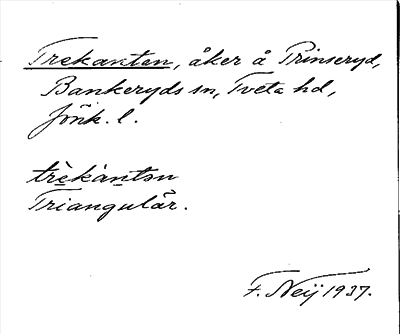 Trekanten, åker å Prinseryd,
Bankeryds sn, Tveta hd,
Jönk. l.
trèkàntən
Triangulär.
F. Neij 1937.